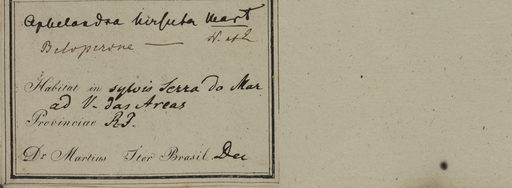 Aphelandra hirsuta Mart
Beloperone — N. et
Habitat in sylvis Serra do Mar
ad V. das Areas
Provinciae R.J.
Dr Martius Iter Brasil. Dec